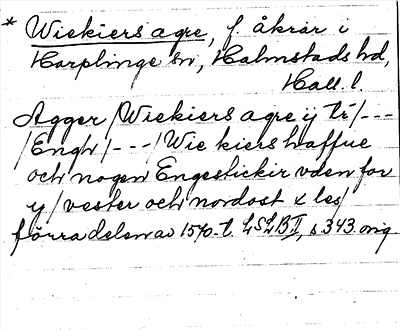 * Wiekiers agre, f. åkrar i
Harplinge sn, Halmstads hd,
Hall. l.
Agger / Wiekiers agre ij tr / - - -
/ Engh / - - - / Wie kiers haffue
och nogen Engestickir vden for
y / vester och nordost & les /
förra delen av 1570-t. LSLB II, s 343. orig.